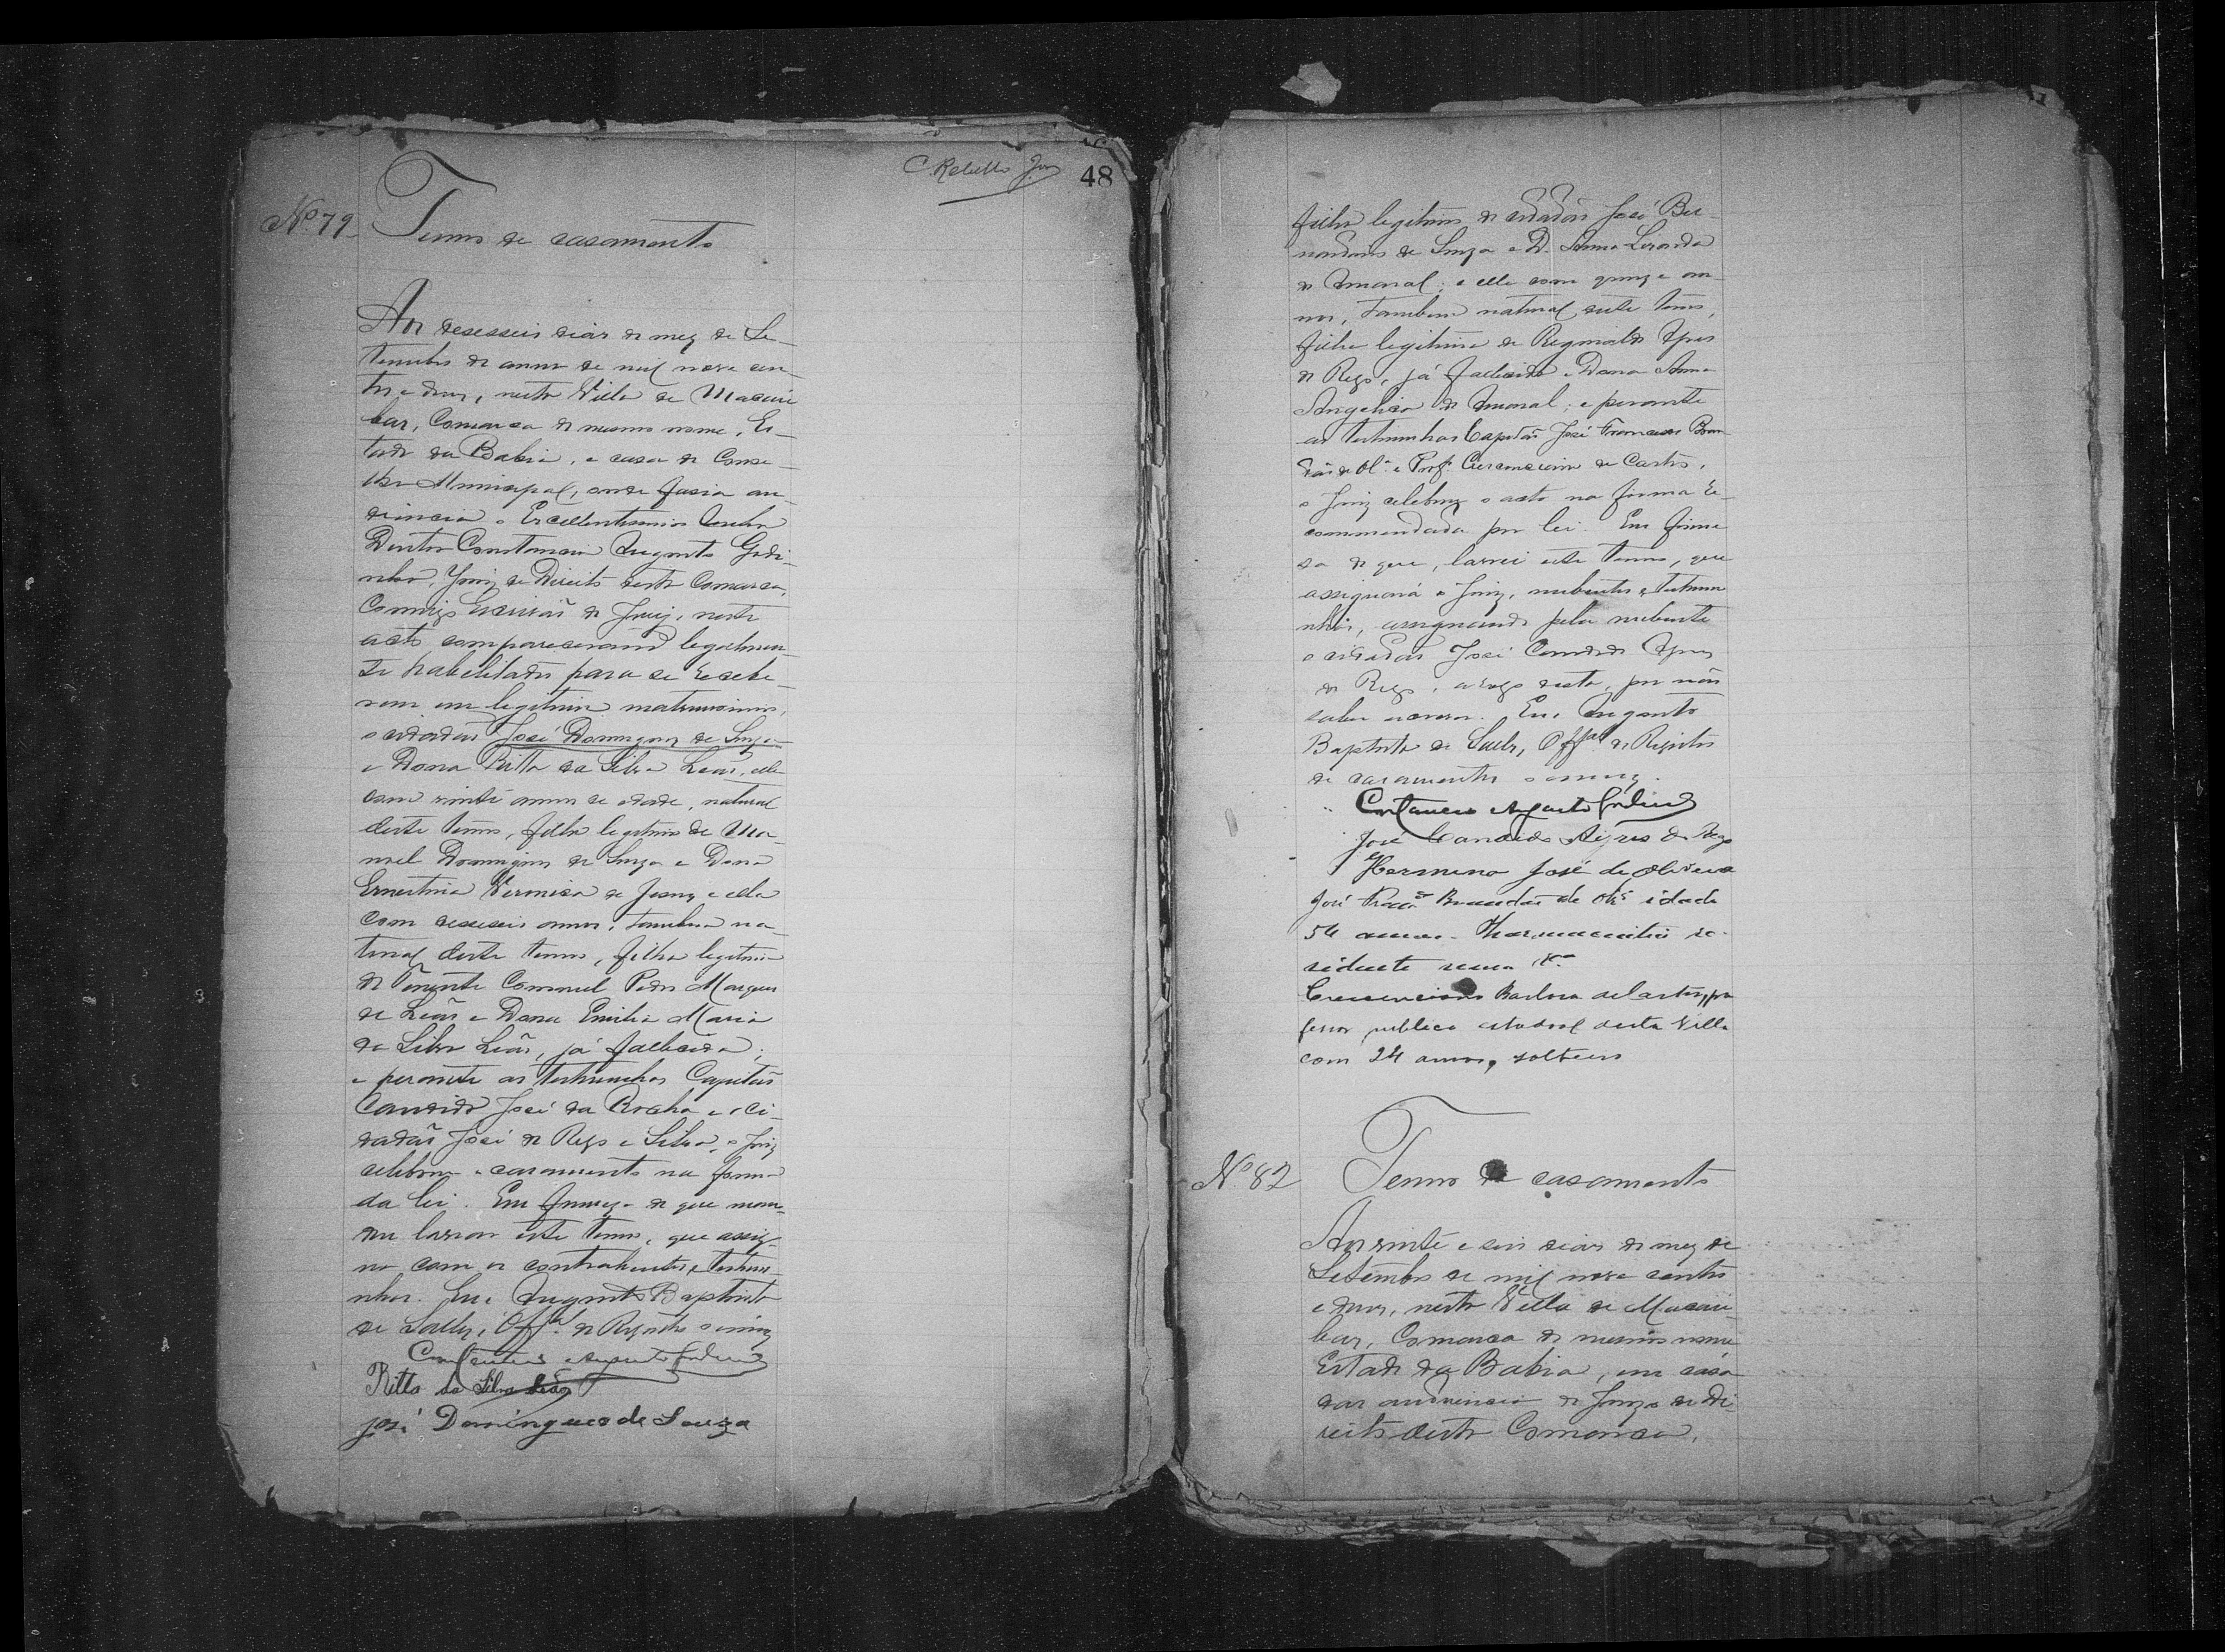 C Rebello Jor
48
Nº 79
Termo de casamento
Aos desesseis dias do mez de Se-
tembro do anno de mil nove cen-
tos e dous, nesta Villa de Macau-
bas, Comarca do mesmo nome, Es-
tado da Bahia, e casa do Conse-
lho Municipal, onde fasia au-
diencia o Excellentissimo Senhor
Doutor Constancio Augusto Godi-
nho, Juiz de Direito desta Comarca,
Commigo Escrivão do Juiz, neste
acto comparecerão legalmen-
te habilitados para se recebe-
rem em legitimo matrimonio,
o cidadão José Domingues de Souza
e Dona Ritta da Silva Leão, elle
com vinte annos de idade, natural
deste termo, filho legitimo de Ma-
noel Domingues de Souza e Dona
Ernestina Veronica de Jesus e ella
com desseseis annos, tambem na-
tural deste termo, filha legitima
do Tenente Coronel Pedro Marques
de Leão e Dona Emilia Maria
da Silva Leão, já fallecida;
e perante as testemunhas Capitão
Candido José da Rocha e o ci-
dadão José do Rego e Silva, o Juiz
celebrou o casamento na forma
da lei. Em firmeza do que man-
dou lavrar este termo, que assig-
na com os contrahentes e testemu-
nhas. Eu, Augusto Baptista
de Salles, Offal do Registro o escrevi
Constancio Augusto Godinho
Ritta da Silva Leão
José Domingues de Souza
filho legitimo do cidadão José Ber-
nardino de Souza e D. Anna
do Amaral; e ella com quinze an-
nos, tambem natural deste termo,
filha legitima de Reginaldo Ayres
do Rego, já fallecido e Dona Anna
Angelica do Amaral; e perante
as testemunhas Capitão José Francisco Bran-
dão de Olª e Profº Crescenciano de Castro,
o Juiz celebrou o acto na forma re-
commendada por lei. Em firme-
sa do que, lavrei este termo, que
assignará o Juiz, nubentes e testemu-
nhas, assignando pela nubente
o cidadão José Candido Ayres
do Rego, a rogo desta, por não
saber escrever. Eu, Augusto
Baptista de Salles, Offal do Registro
de casamentos o escrevi.
Constancio Augusto Godinho
José Candido Aijres do Rego
Hermino José de Oliveira
José Francº Brandão de Olª idade
54 annos. Pharmaceutico re-
sidente nesta Vª
Crescenciano Barbosa de Castro, pro
fessor publico estadoal desta Villa
com 24 annos, solteiro
Nº 82
Termo de casamento
Aos vinte e seis dias do mez de
Setembro de mil nove centos
e dous, nesta Villa de Macau-
bas, Comarca do mesmo nome
Estado da Bahia, em casa
das audiencias do Juizo de Di-
reito desta Comarca,